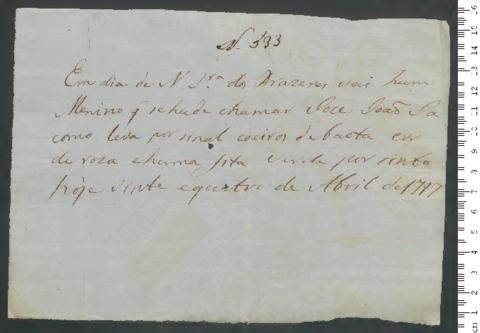 N. 533
Em dia de N Sra dos Prazeres vai hum
Menino q se hade chamar Joce Joaõ Ja
como leva por sinal coeiros de baeta cor
de roza e huma fita verde por sinto
hoje vinte e quatro de Abril de 1797